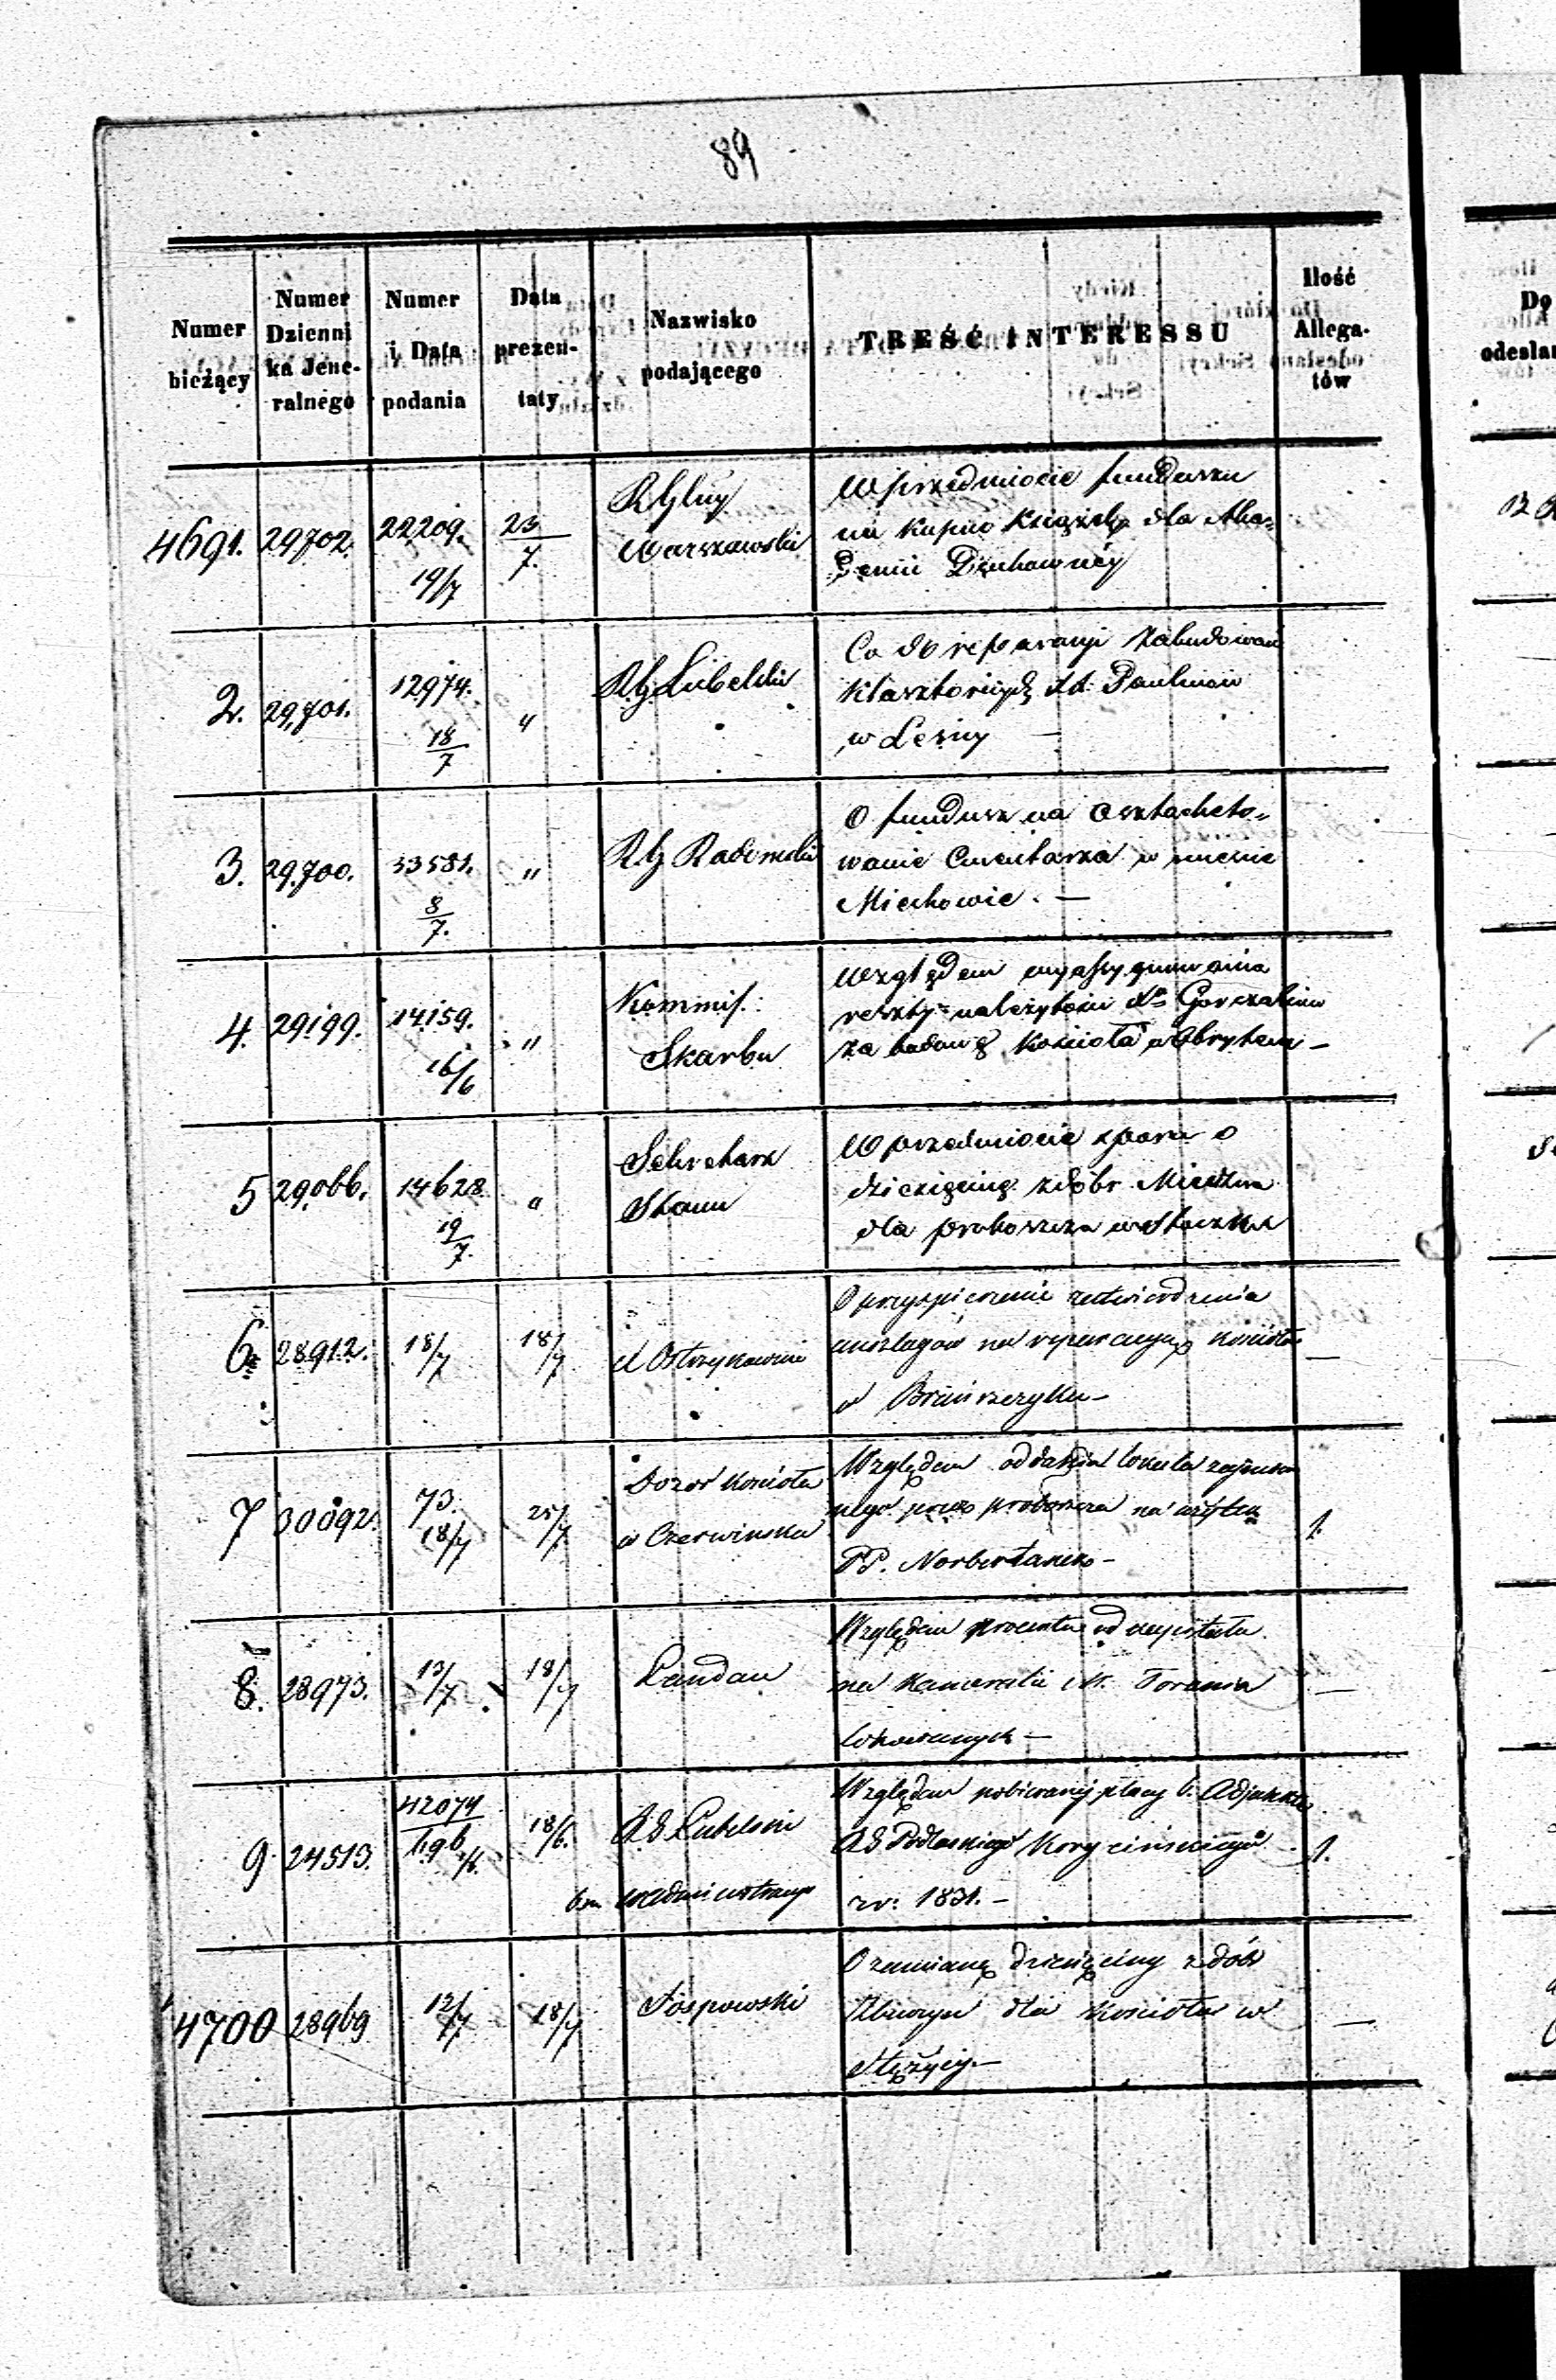 89
Numer bieżący | Numer Dziennika Jeneralnego | Numer i Data podania | Data prezentaty | Nazwisko podającego | TREŚĆ INTERESSU | Ilość Allegatów
4691. 29702. 22209. 19/7 23/7. RGlny Warszawski
W przedmiocie funduszu
na kupno Książek dla Aka=
demii Duchownéy
2. 29,701. 12974. 18/7 " RG Lubelski
Co do reparacyi Zabudowań
Klasztornych XX Paulinów
w Leśny —
3. 29,700. 33581. 8/7. " RG Radomski
O fundusz na Osztacheto=
wanie Cmentarza w mieście
Miechowie. —
4. 29199. 14159. 16/6 " Kommis.: Skarbu
Względem wyassygnowania
reszty należytości
za budowę Kościoła —
5 29066. 14628 19/7. " Sekretarz Stanu
W przedmiocie sporu o
dziesięcinę z dóbr
dla proboszcza
6. 28912. 18/7 18/7
O przyspieszenie zatwierdzenia
anszlagów na reperacyę kościoła —
w
7 30092. 73. 18/7 25/7 Dozór Kościoła w Czerwińsku
Względem oddania lokalu zajmowa
nego przez proboszcza na użytek 1.
PP. Norbertanek —
8. 28973. 13/7 18/7 Landau
Względem procentu od kapitału
na Kameralii M. Torunia —
lokowanych —
9 24513. 42074/696 18/6. Lubelski
Względem pobieraney płacy b. Adjunkta
Podlaskiego 1.
z r: 1831. —
4700 28969 12/7 18/7
O zamianę dziesięciny z dóbr
dla Kościoła w —
Stężycy. —
Do
odesłan